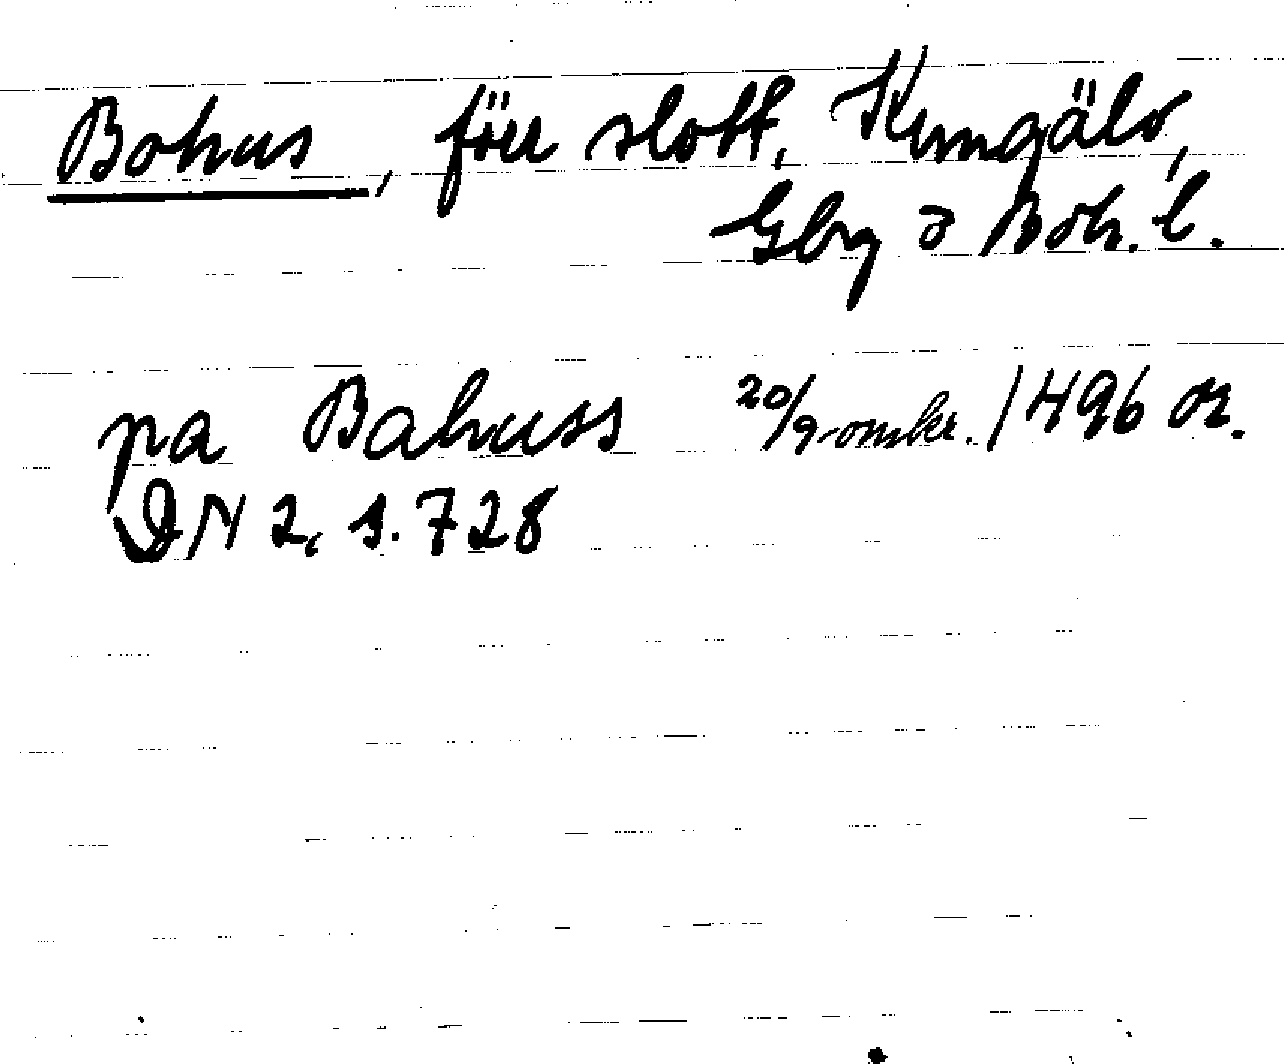 Bohus, förr slott, Kungälv,
Gbg o Boh. l.
pa Bahuss 20/9-omkr. 1496 or.
DN 2, s. 728